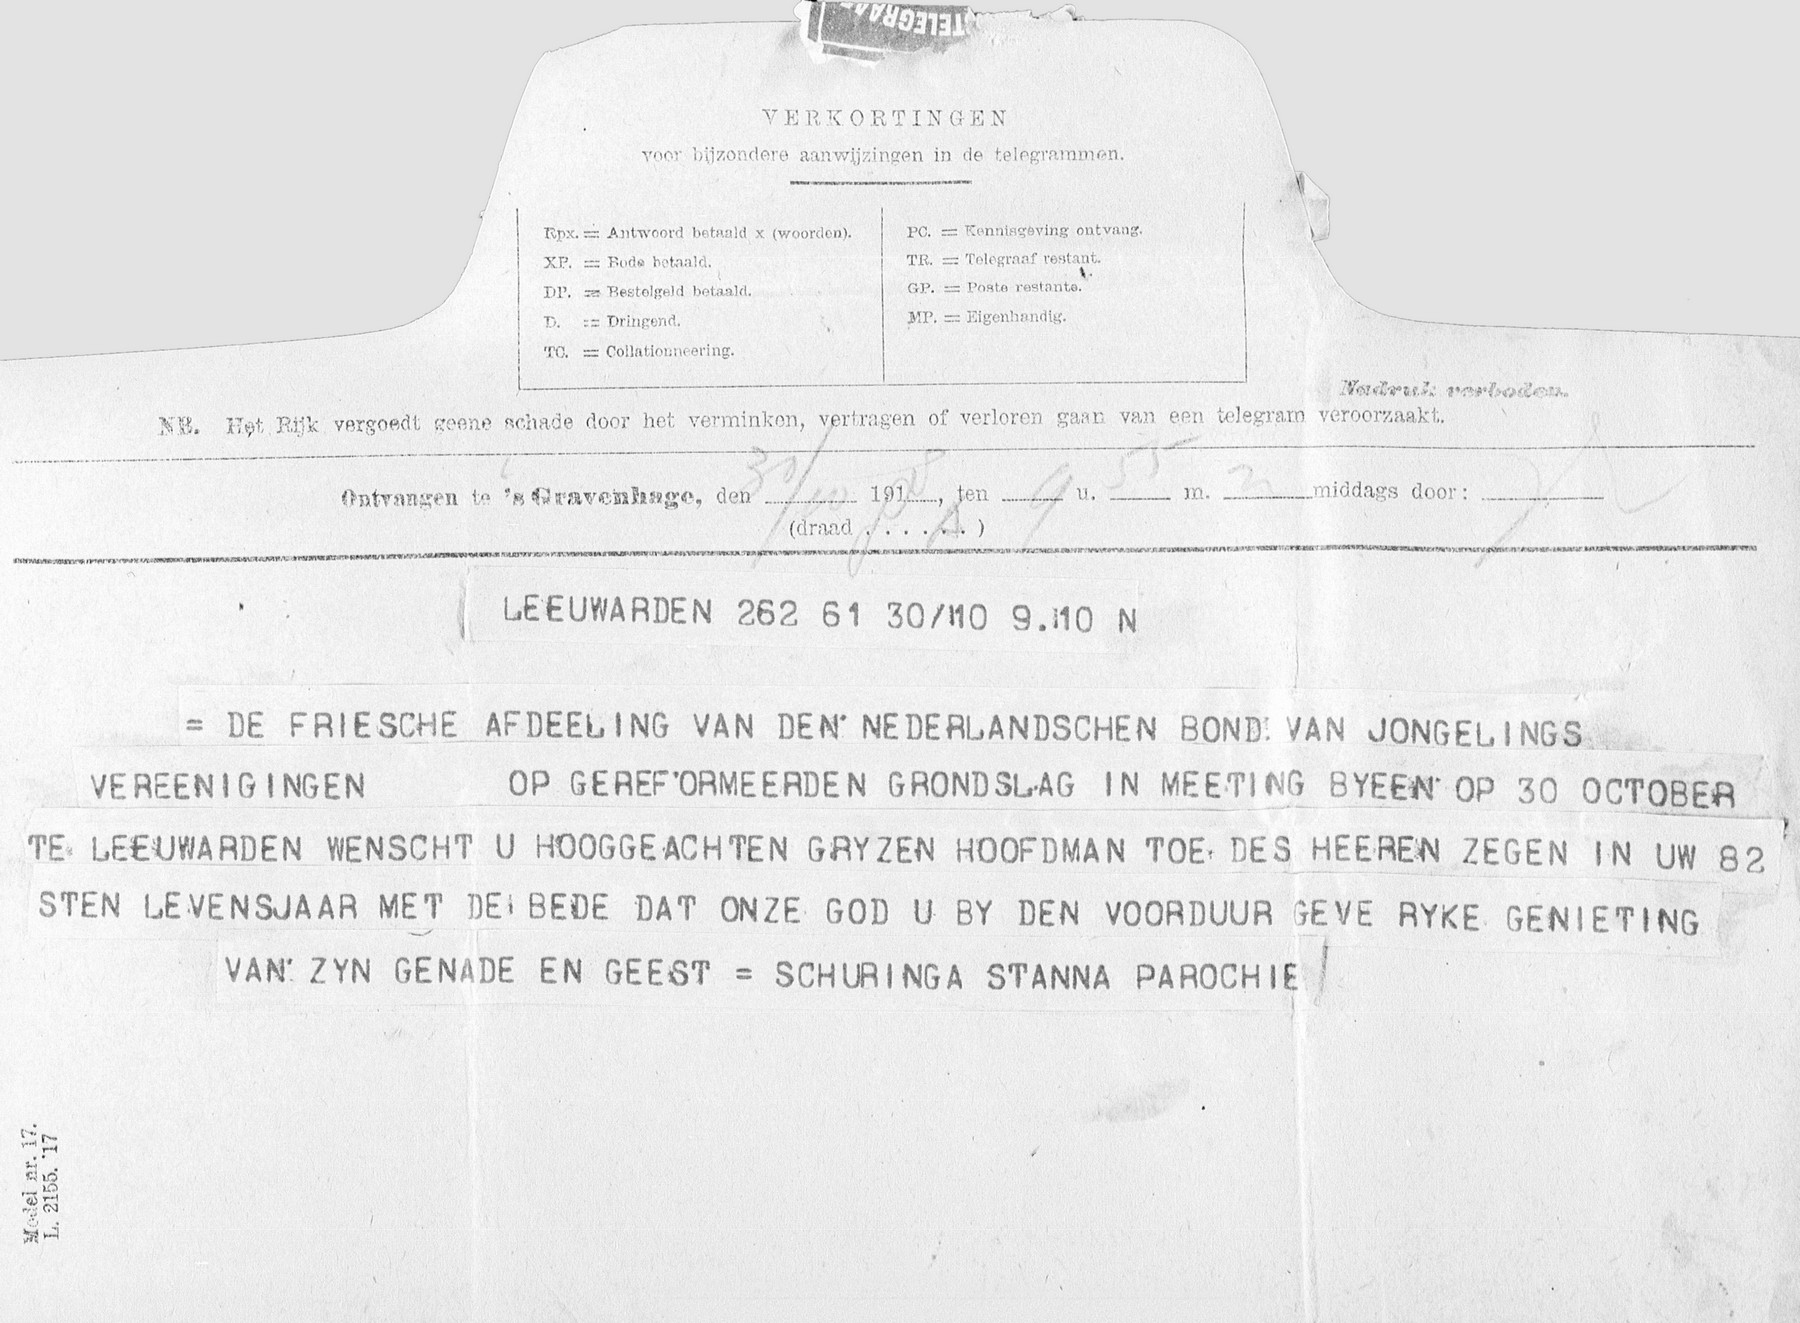 TELEGRAA
VERKORTINGEN
voor bijzondere aanwijzingen in de telegrammen.
Rpx. = Antwoord betaald x (woorden).
XP. = Bode betaald.
DP. = Bestelgeld betaald.
D. = Dringend.
TC. = Collationneering.
PC. = Kennisgeving ontvang.
TR. = Telegraaf restant.
GP. = Poste restante.
MP. = Eigenhandig.
Nadruk verboden.
NB. Het Rijk vergoedt geene schade door het verminken, vertragen of verloren gaan van een telegram veroorzaakt.
Ontvangen te 's Gravenhage, den 30/10 1918, ten 9 u. 55 m. n middags door:
(draad . . . . . . )
LEEUWARDEN 262 61 30/10 9.10 N
= DE FRIESCHE AFDEELING VAN DEN NEDERLANDSCHEN BOND VAN JONGELINGS
VEREENIGINGEN OP GEREFORMEERDEN GRONDSLAG IN MEETING BYEEN OP 30 OCTOBER
TE LEEUWARDEN WENSCHT U HOOGGEACHTEN GRYZEN HOOFDMAN TOE DES HEEREN ZEGEN IN UW 82
STEN LEVENSJAAR MET DE BEDE DAT ONZE GOD U BY DEN VOORDUUR GEVE RYKE GENIETING
VAN ZYN GENADE EN GEEST = SCHURINGA STANNA PAROCHIE
Model nr. 17.
L. 2155. '17